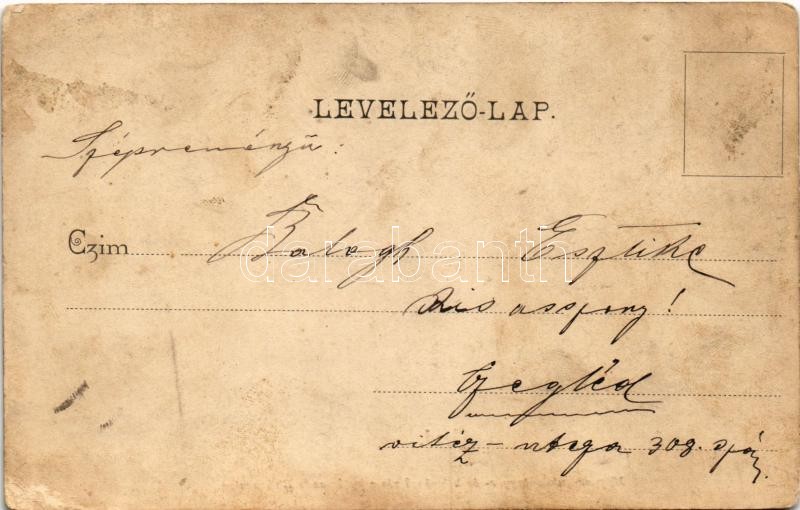 LEVELEZŐ-LAP.
Szépreményü:
Czim Balogh Esztike
kis asszony!
Czegléd
vitéz-utcza 308. szám.
darabanth